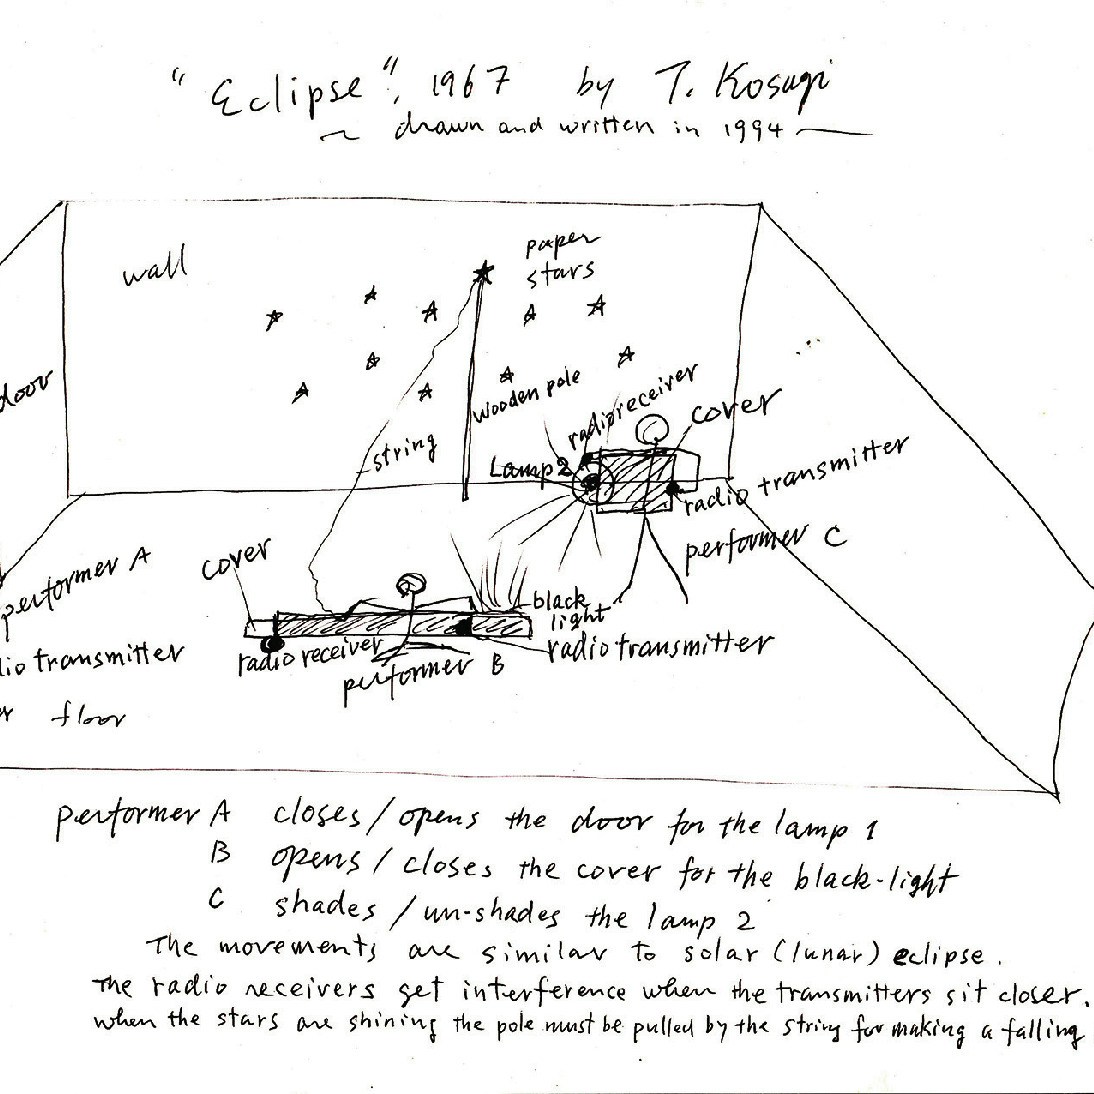 "Eclipse", 1967 by T. Kosugi
~ drawn and written in 1994 ~
wall
paper
stars
door
wooden pole
radio receiver
cover
string
Lamp 2
radio transmitter
performer C
performer A
cover
black
light
radio transmitter
dio transmitter
radio receiver
performer B
floor
performer A closes / opens the door for the lamp 1
B opens / closes the cover for the black-light
C shades / un-shades the lamp 2
The movements are similar to solar (lunar) eclipse.
The radio receivers get interference when the transmitters sit closer.
when the stars are shining the pole must be pulled by the string for making a falling